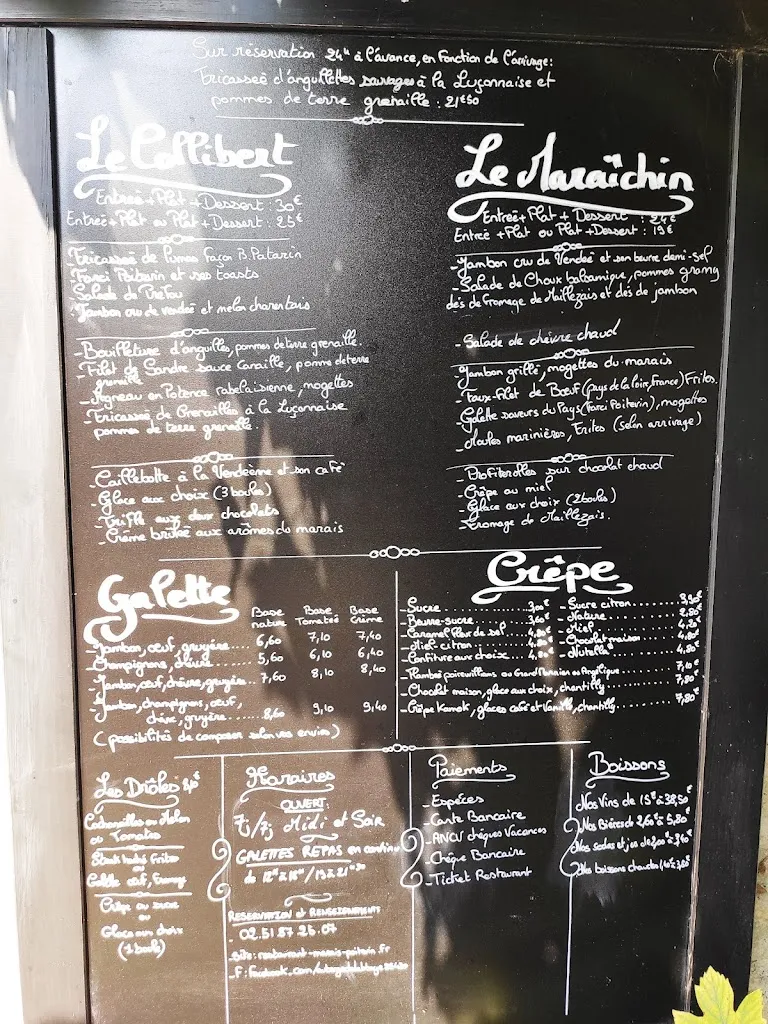 Sur réservation 24h à l'avance, en fonction de l'arrivage:
Fricassée d'anguillettes sauvages à la Luçonnaise et
pommes de terre grenaille : 21€50
Le Collibert
Entrée+Plat+Dessert : 30€
Entrée+Plat ou Plat+Dessert : 25€
Fricassée de lumas façon B. Patarin
Farci Poitevin et ses toasts
-Salade de Préfou
-Jambon cru de vendée et melon charentais
-Bouilleture d'anguilles, pommes de terre grenaille.
-Filet de Sandre sauce Canaille, pomme de terre
grenaille
-Agneau en Potence rabelaisienne, mogettes
-Fricassée de Grenailles à la Luçonnaise
pommes de terre grenaille.
-Caillebotte à la Vendéenne et son café
-Glace aux choix (3 boules)
-Truffe aux deux chocolats
-Crème brulée aux arômes du marais
Le Maraîchin
Entrée+Plat + Dessert : 24€
Entrée +Plat ou Plat+Dessert : 19€
-Jambon cru de Vendée et son beurre demi-sel
-Salade de Choux balsamique, pommes granny
dés de fromage de Maillezais et dés de jambon
-Salade de chèvre chaud
-Jambon grillé, mogettes du marais
-Faux-filet de Bœuf (pays de la loire, France) Frites.
-Galette saveurs du Pays (Farci Poitevin), mogettes
-Moules marinières, Frites (selon arrivage)
-Profiterolles sur chocolat chaud
-Crêpe au miel
-Glace aux choix (2boules)
-Fromage de Maillezais.
Galette
Base nature Base Tomatée Base Crème
-Jambon, œuf, gruyère..... 6,60 7,10 7,40
-Champignons, chèvre...... 5,60 6,10 6,40
-Jambon, œuf, chèvre, gruyère.. 7,60 8,10 8,40
-Jambon, champignons, œuf,
chèvre, gruyère...... 8,60 9,10 9,40
(possibilités de composer selon vos envies)
Crêpe
-Sucre........... 3,00€
-Beurre-sucre....... 3,60€
-Caramel fleur de sel..
-Miel-citron......
-Confiture aux choix..
-Sucre citron........ 3,90€
-Nature........... 2,80€
-Miel............ 4,20€
-Chocolat maison...... 4,80€
-Nutella.......... 4,80€
-Flambée au Grand Marnier ou Angélique 7,10€
-Chocolat maison, glace aux choix, chantilly.......... 7,80€
-Crêpe Kamok, glaces café et Vanille, chantilly........ 7,80€
Les Drôles
ou Melon
ou Tomates
Steak haché frites
ou
Galette œuf, Fromage
Crêpe au sucre
ou
Glace aux choix
(1 boule)
Horaires
OUVERT:
7j/7j Midi et Soir
GALETTES REPAS en continu
RESERVATION et RENSEIGNEMENTS
02.51.87.25.07
-Site: restaurant-marais-poitevin.fr
Paiements
-Espèces
-Carte Bancaire
-ANCV chèques Vacances
-Chèque Bancaire
-Ticket Restaurant
Boissons
Nos Vins de 15€ à 38,50€
Nos Bières de 2,60€ à 5,80€
Nos sodas et jus de
Nos boissons chaudes